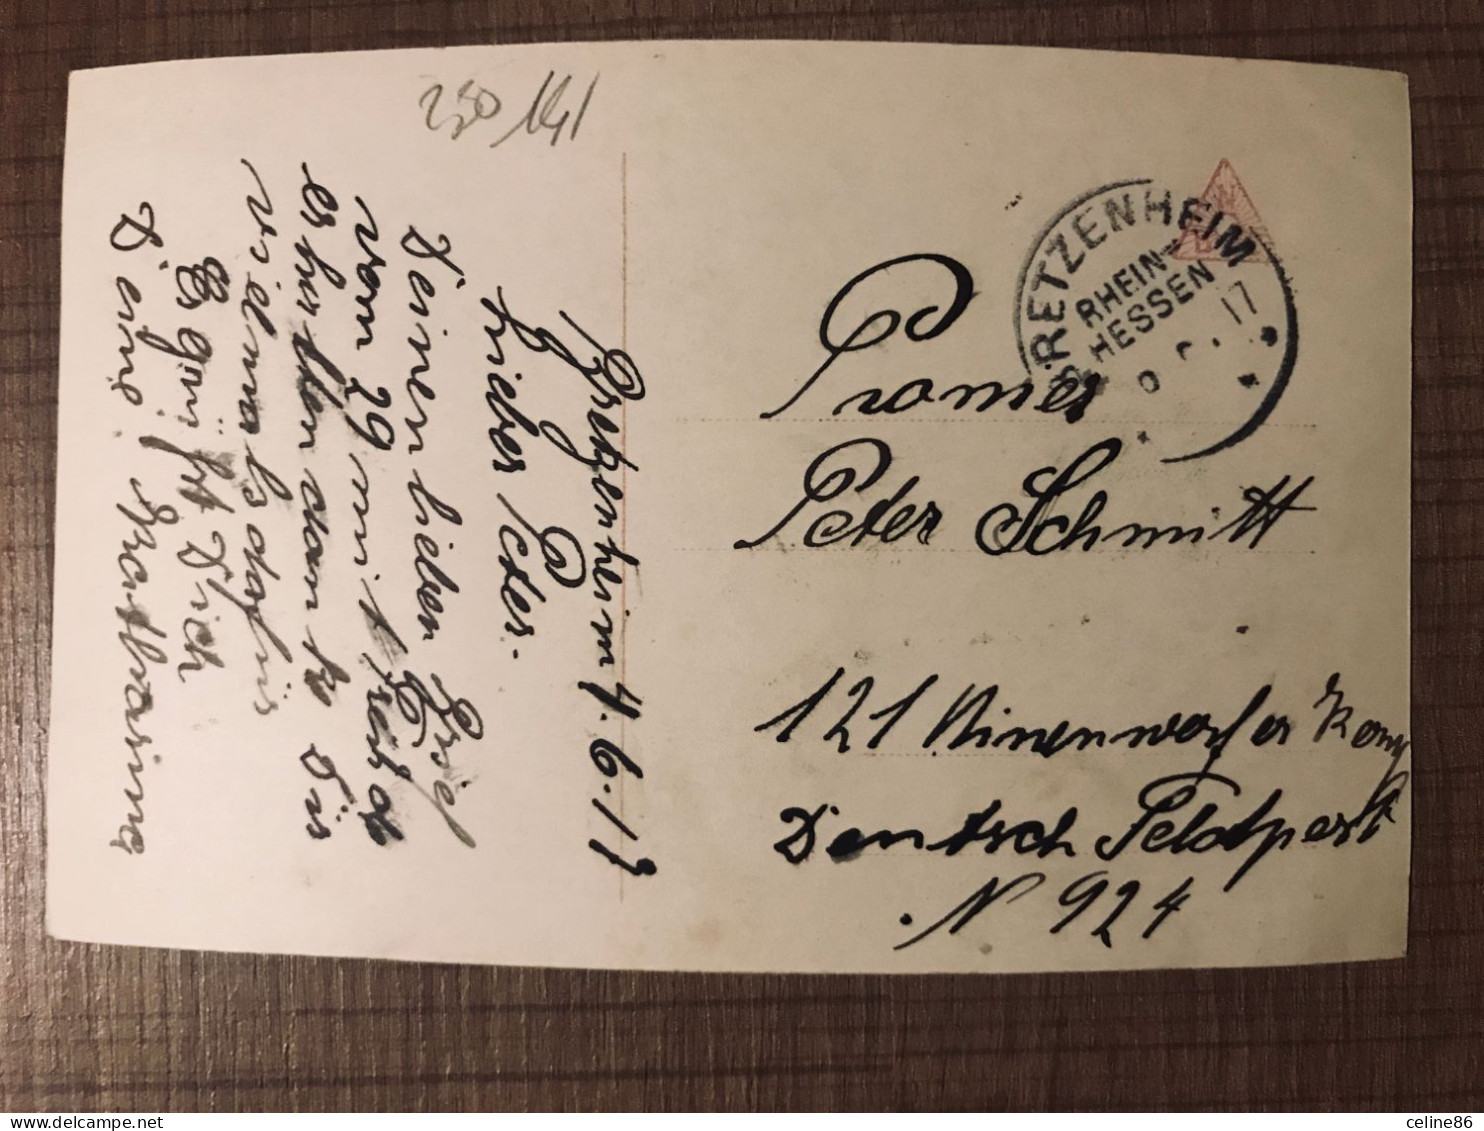 250 141
Bretzenheim 4.6.17
Lieber Peter.
Deinen lieben Brief
vom 29 mit
erhalten danke Dir
vielmals dafür
Es grüßt Dich
Deine Katharina
BRETZENHEIM
RHEIN-
HESSEN
17
Peter Schmitt
121 Minenwerfer Komp
Deutsch Feldpost
N 924
celine86